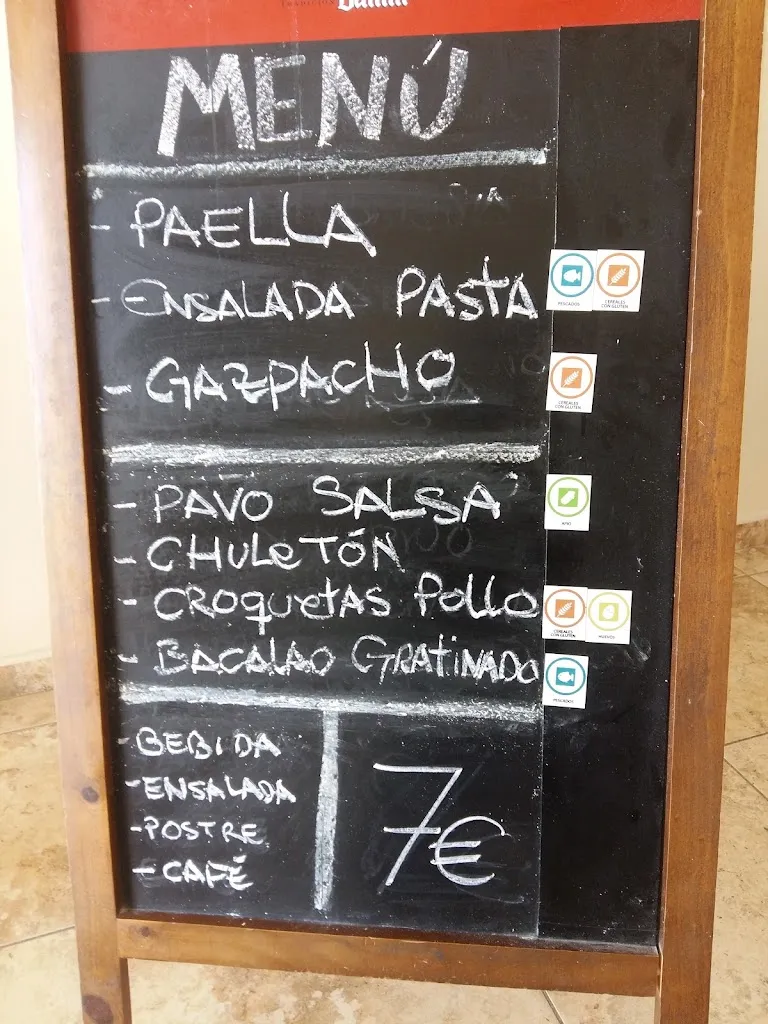 TRADICIÓN Damm
MENÚ
- PAELLA
- ENSALADA PASTA
PESCADOS
CEREALES CON GLUTEN
- GAZPACHO
CEREALES CON GLUTEN
- PAVO SALSA
APIO
- CHULETÓN
- CROQUETAS POLLO
CEREALES CON GLUTEN
HUEVOS
- BACALAO GRATINADO
PESCADOS
- BEBIDA
- ENSALADA
- POSTRE
- CAFÉ
7€